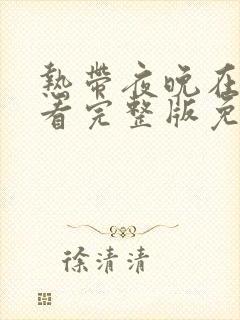 热带夜晚在
看完整版免
徐清清